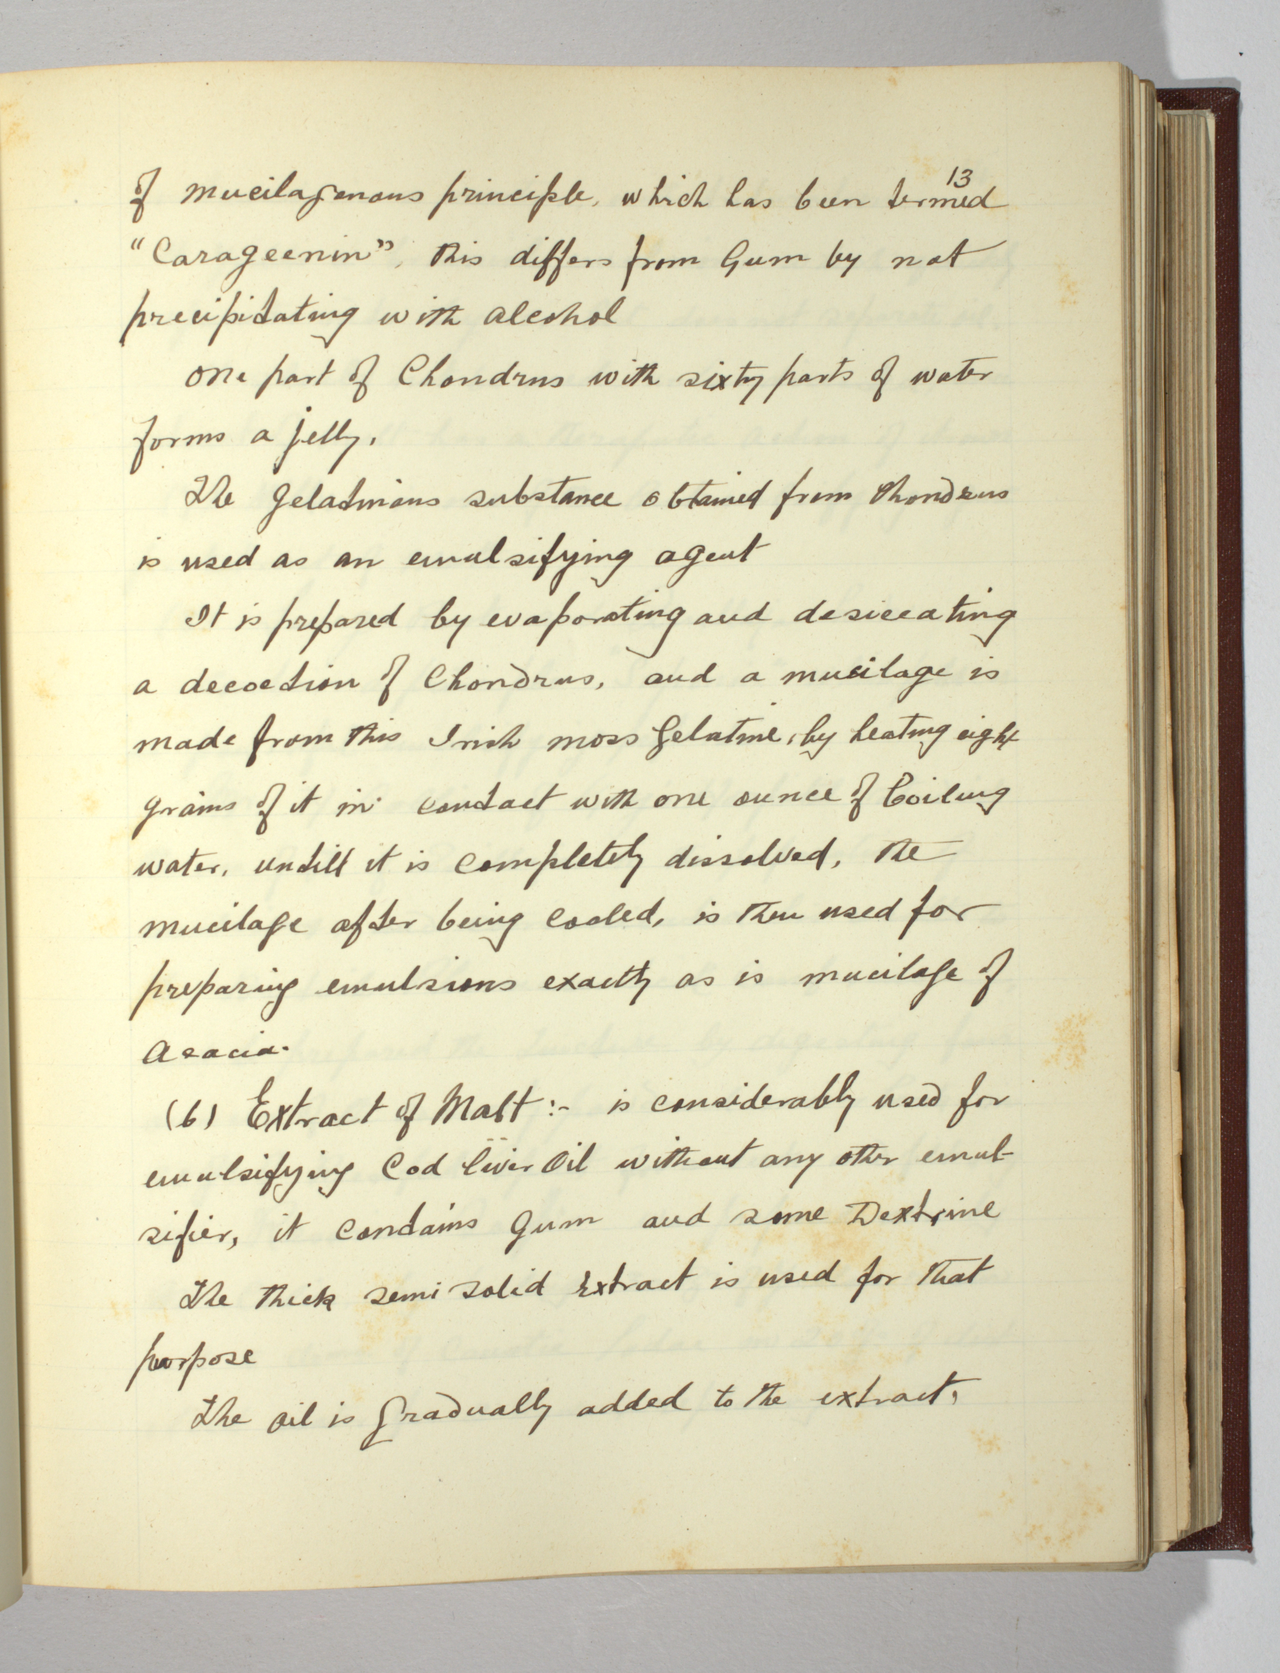 13
of mucilagenous principle, which has been termed
"Carageenin", this differs from Gum by not
precipitating with alcohol
One part of Chondrus with sixty parts of water
forms a jelly.
The Gelatinous substance obtained from Chondrus
is used as an emulsifying agent
It is prepared by evaporating and desiccating
a decoction of Chondrus, and a mucilage is
made from this Irish moss Gelatine, by heating eight
grains of it in contact with one ounce of boiling
water, untill it is completely dissolved, the
mucilage after being cooled, is then used for
preparing emulsions exactly as is mucilage of
Acacia.
(6) Extract of Malt :- is considerably used for
emulsifying Cod liver Oil without any other emul-
sifier, it contains Gum and some Dextrine
The thick semi solid Extract is used for that
purpose
The oil is gradually added to the extract,